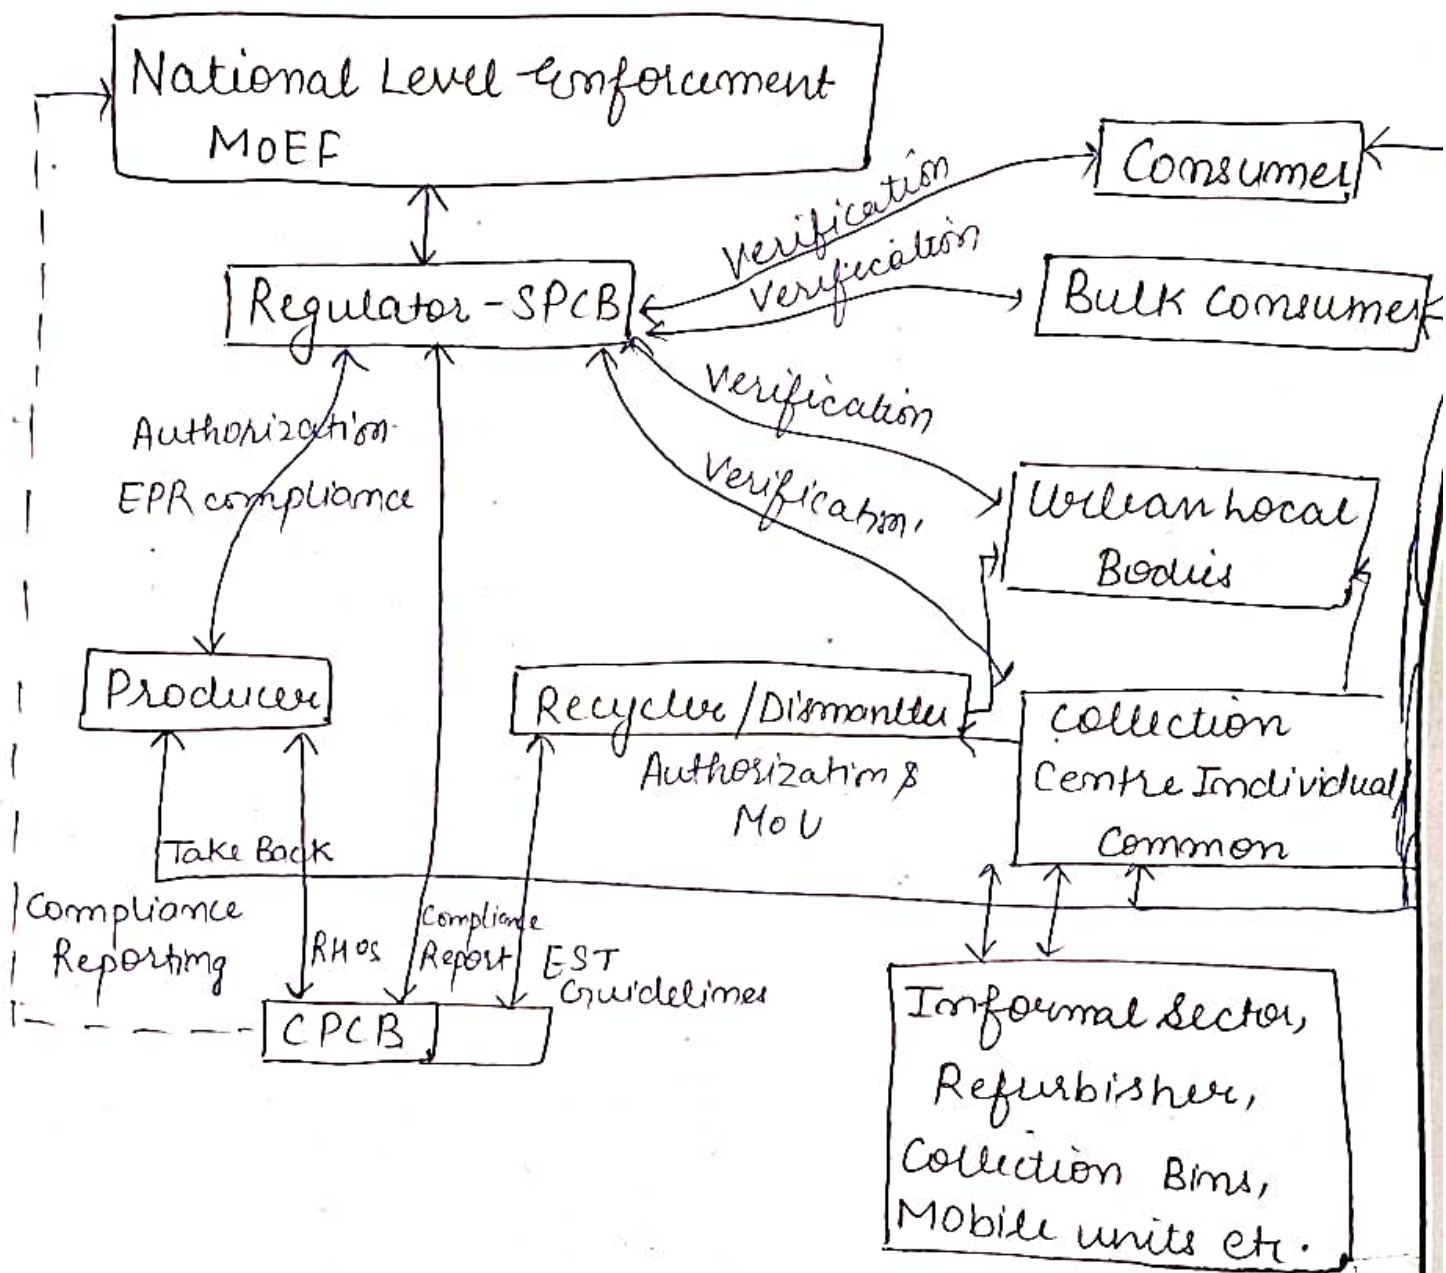 National Level Enforcement
MOEF
Consumer
Verification
Verification
Regulator-SPCB
Bulk Consumer
Verification
Authorization
EPR compliance
Verification
Urban Local
Bodies
Producer
Recycler/Dismantler
Authorization &
MoU
Collection
Centre Individual
Common
Take Back
Compliance
Reporting
RHOs
Compliance
Report
EST
Guidelines
CPCB
Informal Sector,
Refurbisher,
Collection Bins,
Mobile units etc.